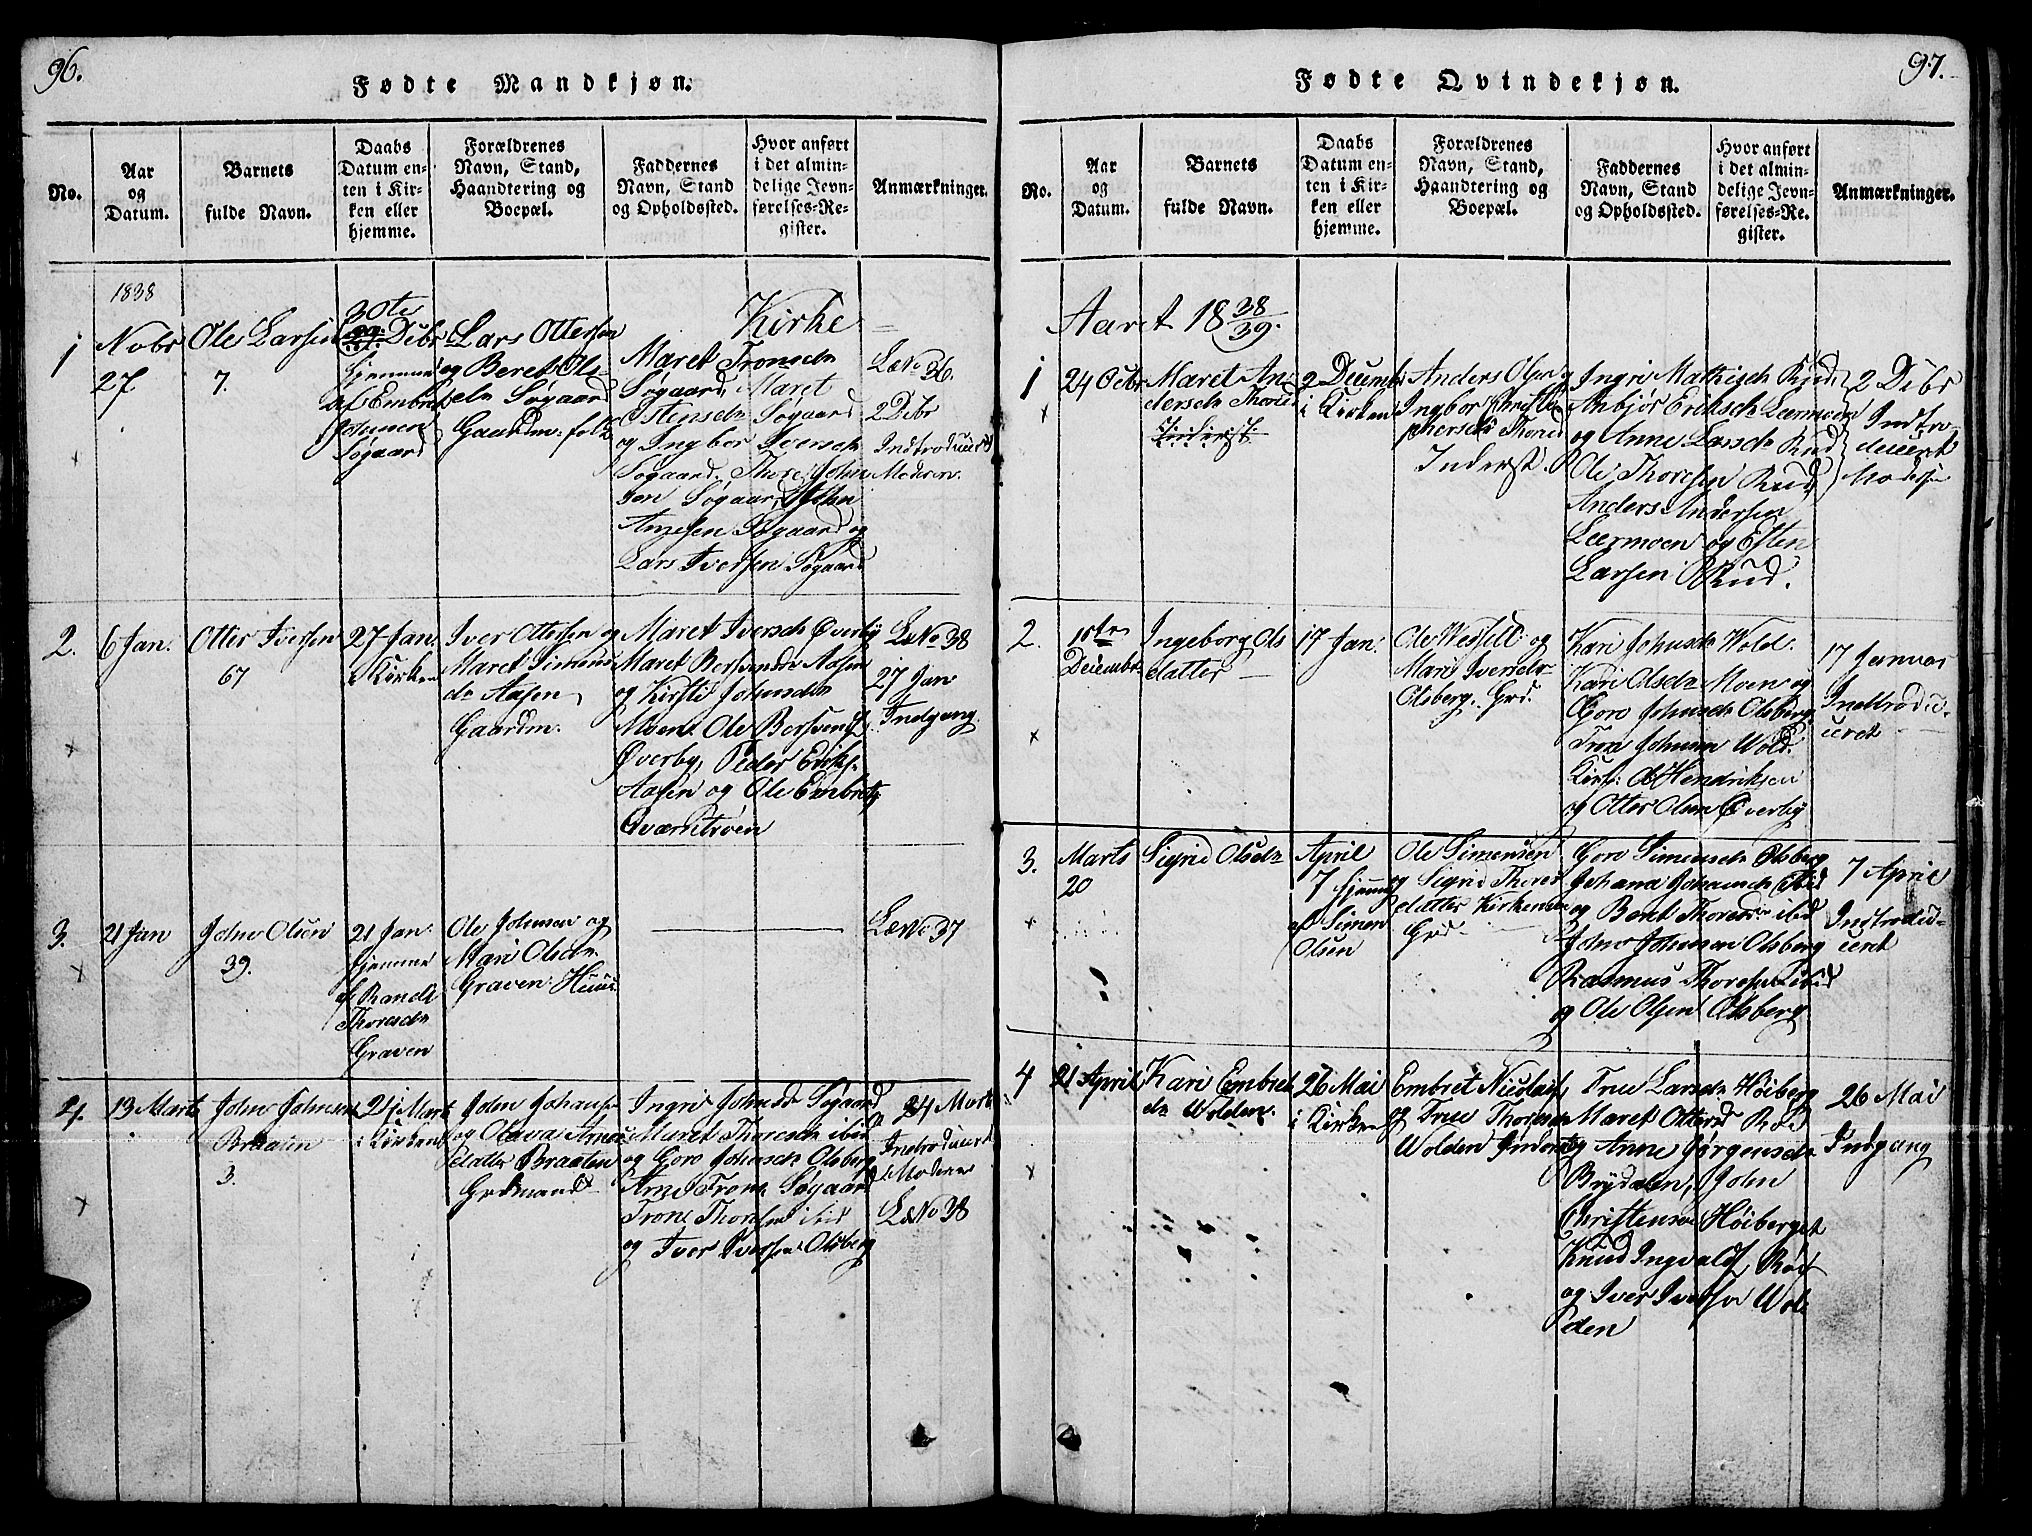 96.
Fødte Mandkjøn.
No.
Aar
og
Datum.
Barnets
fulde Navn.
Daabs
Datum en-
ten i Kir-
ken eller
hjemme.
Forældrenes
Navn, Stand,
Haandtering og
Boepæl.
Faddernes
Navn, Stand
og Opholdssted.
Hvor anført
i det almin-
delige Jevn-
førelses-Re-
gister.
Anmærkninger.
1
1838
Nobr
27
Ole Larsen
7.
30te
Debr
hjemme
af Embret
Johnsen
Søgaard
Lars Ottersen
og Beret Ols-
datr Søgaard
Gaardm: folk
Kirke
Maret Tronsdr
Søgaard, Maret
Estensdr Søgaard
og Ingbor Iversdr
Søgaard. Thore John
sen Søgaard, Esten
Arnesen Søgaard og
Lars Iversen Søgaard
L. No 36.
2 Debr
Indtroduceret
Moderen.
2.
6 Jan.
Otter Iversen
67
27 Jan.
i Kirken
Iver Ottersen og
Maret Simens
dr Aasen
Gaardm.
Maret Iversdr Øverby
Maret Bersvendsdr Aasen
og Kirsti Johnsdr
Moen. Ole Bersvends
Øverby, Peder Eriks.
Aasen og Ole Embrets
Qværntrøen
L. No 38
27 Jan
Indgang
3.
21 Jan
John Olsen
39.
21 Jan.
hjemme
af Randi
Thoresdr
Graven
Ole Johnsen og
Mari Olsdr
Graven. Huus
L. No 37
4.
13 Marts
John Johnsen
Braaten
3.
24 Mart
i Kirken
John Johans.
og Olava Arnes
datter Braaten
Grdmand
Ingri Johnsd Søgaard
Maret Thoresdr ibid
og Goro Johnsdr Olsberg
Arne Trons. Søgaard
Trond Thoresen ibid
og Iver Iversen Olsberg
24 Mart
Introduceret
Moderen
L. No 38
97.
Fødte Qvindekjøn.
No.
Aar
og
Datum.
Barnets
fulde Navn.
Daabs
Datum en-
ten i Kir-
ken eller
hjemme.
Forældrenes
Navn, Stand,
Haandtering og
Boepæl.
Faddernes
Navn, Stand
og Opholdssted.
Hvor anført
i det almin-
delige Jevn-
førelses-Re-
gister.
Anmærkninger.
Aaret 1838/39.
1
24 Octbr
Maret An
dersdr Thorud
2 Decemb
i Kirken
Anders Olsen og
Ingbor Christo
phersdr Thorud
Inderst.
Ingri Mathisdr Rud,
Anbjør Eriksdr Leermoen
og Anne Larsdr Rud
Ole Thoresen Rud
Anders Andersen
Leermoen og Esten
Larsen Rud.
2 Debr
Indtro-
duceret
Moderen
2.
15te
Decembr
Ingeborg Ols
datter
17 Jan.
Ole Vesfell og
Mari Iversdr
Olsberg. Grd.
Kari Johnsdr Wold.
Kari Olsdr Moen og
Goro Johnsdr Olsberg
Tron Johnsen Wold
Ole Hendriksen
og Otter Olsen Øverby
17 Januar
Indtrodu-
ceret
3.
Marts
20
Sigrid Olsdr
April
7 hjemme
af Simen
Olsen
Ole Simensen
og Sigrid Thores
datter Kirkemoen
Grd.
Goro Simensdr Olsberg
Johana Johansdr ibid
og Beret Thoresdr ibid
John Johnsen Olsberg
Rasmus Thoresen ibid
og Ole Olsen Olsberg
7 April
Indtrodu-
ceret
4
21 April
Kari Embret
dr Wolden.
26 Mai
i Kirken
Embret Nicolais.
og True Thoresdr
Wolden Inderst
True Larsdr Høiberg
Maret Ottersd Rød
og Anne Jørgensdr
Brydalen, John
Christensen Høiberget
Knud Ingvalds. Rød
og Iver Iversen Wol
den
26 Mai
Indgang